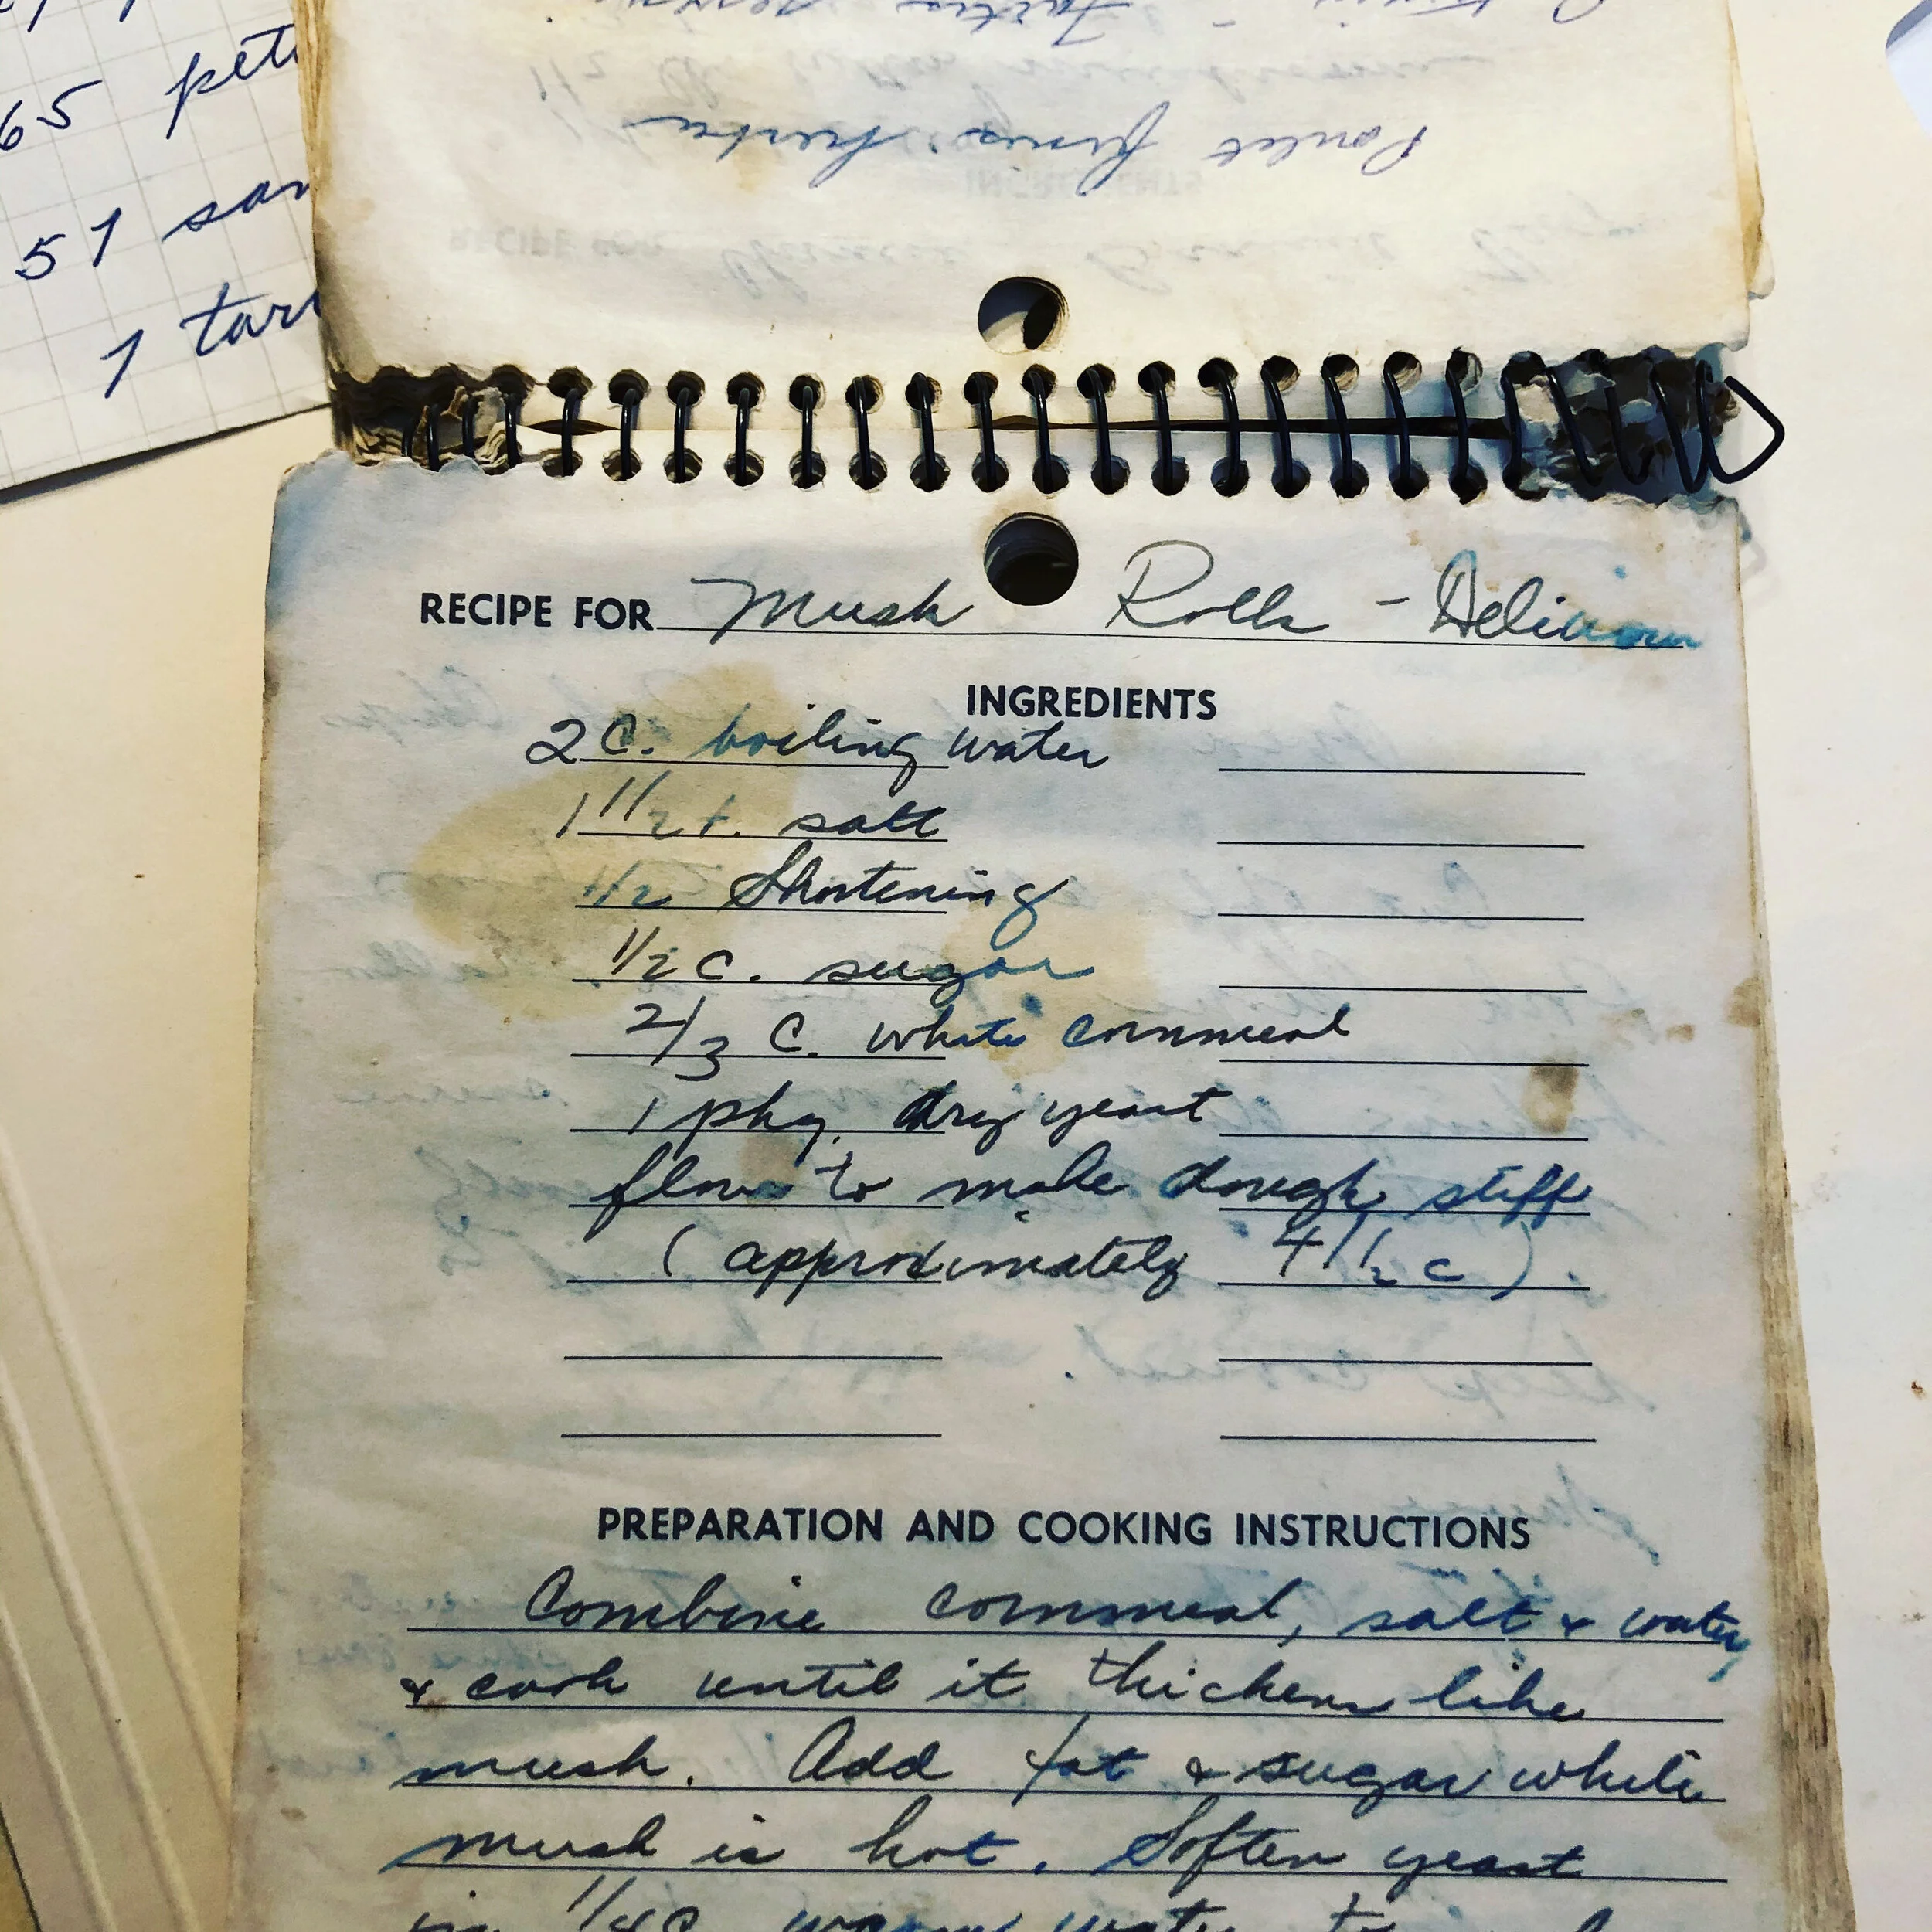 65
51
1
RECIPE FOR Mush Rolls - Delicious
INGREDIENTS
2 C. boiling water
1 1/2 t. salt
1/2 Shortening
1/2 C. sugar
2/3 C. white cornmeal
1 pkg. dry yeast
flour to make dough stiff
(approximately 4 1/2 c).
PREPARATION AND COOKING INSTRUCTIONS
Combine cornmeal, salt & water,
& cook until it thickens like
mush. Add fat & sugar while
mush is hot. Soften yeast
in 1/4 C warm water to